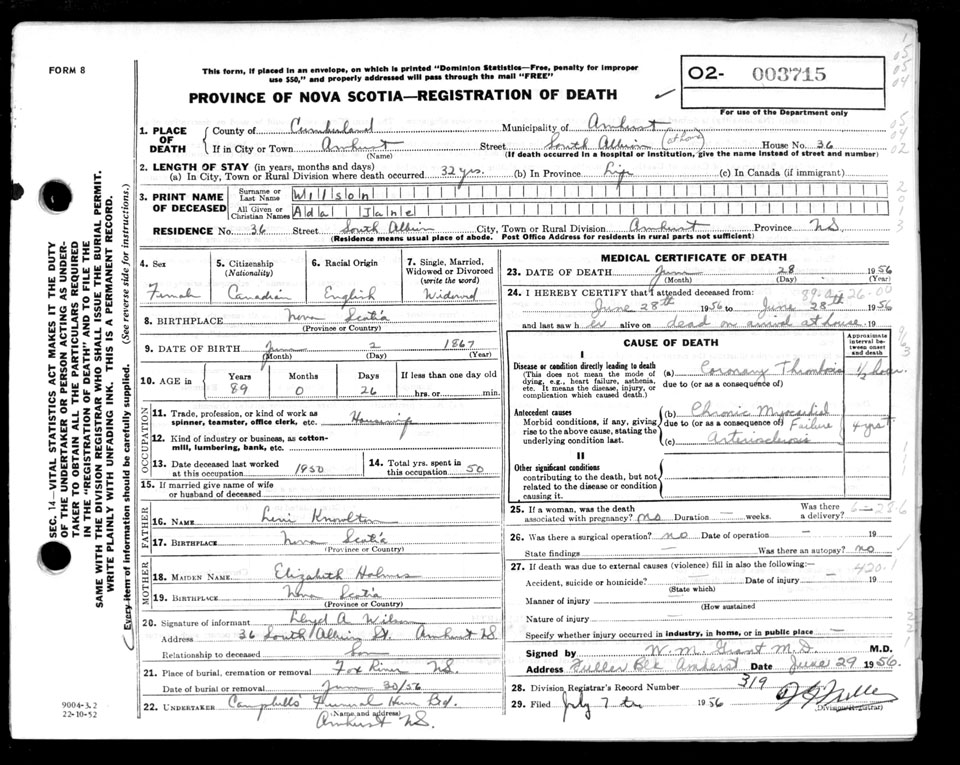 FORM 8
This form, if placed in an envelope, on which is printed "Dominion Statistics—Free, penalty for improper
use $50," and properly addressed will pass through the mail "FREE"
O2- 003715
For use of the Department only
PROVINCE OF NOVA SCOTIA—REGISTRATION OF DEATH
1. PLACE OF DEATH
County of Cumberland Municipality of Amherst
If in City or Town Amherst Street South Albion (at home) House No. 36
(Name) (If death occurred in a hospital or institution, give the name instead of street and number)
2. LENGTH OF STAY (in years, months and days)
(a) In City, Town or Rural Division where death occurred 32 yrs. (b) In Province Life (c) In Canada (if immigrant)
3. PRINT NAME OF DECEASED
Surname or Last Name Wilson
All Given or Christian Names Ada Jane
RESIDENCE No. 36 Street South Albion City, Town or Rural Division Amherst Province N.S.
(Residence means usual place of abode. Post Office Address for residents in rural parts not sufficient)
4. Sex Female
5. Citizenship (Nationality) Canadian
6. Racial Origin English
7. Single, Married, Widowed or Divorced (write the word) Widowed
8. BIRTHPLACE Nova Scotia
(Province or Country)
9. DATE OF BIRTH June 2 1867
(Month) (Day) (Year)
10. AGE in Years 89 Months 0 Days 26 If less than one day old hrs. or min.
OCCUPATION
11. Trade, profession, or kind of work as spinner, teamster, office clerk, etc. Housewife
12. Kind of industry or business, as cotton-mill, lumbering, bank, etc.
13. Date deceased last worked at this occupation 1950
14. Total yrs. spent in this occupation 50
15. If married give name of wife or husband of deceased
FATHER
16. NAME Levi Knowlton
17. BIRTHPLACE Nova Scotia
(Province or Country)
MOTHER
18. MAIDEN NAME Elizabeth Holmes
19. BIRTHPLACE Nova Scotia
(Province or Country)
20. Signature of informant Lloyd A Wilson
Address 36 South Albion St. Amherst N.S.
Relationship to deceased Son
21. Place of burial, cremation or removal Fox River N.S.
Date of burial or removal June 30/56
22. UNDERTAKER Campbells Funeral Home
(Name and address)
Amherst N.S.
MEDICAL CERTIFICATE OF DEATH
23. DATE OF DEATH June 28 1956
(Month) (Day) (Year)
24. I HEREBY CERTIFY that I attended deceased from:
June 28th 1956 to June 28th 1956
and last saw her alive on dead on arrival at house 19
CAUSE OF DEATH
Approximate interval between onset and death
I
Disease or condition directly leading to death
(This does not mean the mode of dying, e.g., heart failure, asthenia, etc. It means the disease, injury, or complication which caused death.)
(a) Coronary Thrombosis 1/2 hour
due to (or as a consequence of)
Antecedent causes
Morbid conditions, if any, giving rise to the above cause, stating the underlying condition last.
(b) Chronic Myocardial Failure 4 yrs
due to (or as a consequence of)
(c) Arteriosclerosis
II
Other significant conditions
contributing to the death, but not related to the disease or condition causing it.
25. If a woman, was the death associated with pregnancy? no Duration — weeks. Was there a delivery?
26. Was there a surgical operation? no Date of operation — 19
State findings — Was there an autopsy? no
27. If death was due to external causes (violence) fill in also the following:—
420.1
Accident, suicide or homicide? — Date of injury — 19
(State which)
Manner of injury
(How sustained
Nature of injury
Specify whether injury occurred in industry, in home, or in public place —
Signed by W. M. Grant M.D. M.D.
Address Fuller Blk Amherst Date June 29 1956.
28. Division Registrar's Record Number 319
29. Filed July 7th 1956
(Division Registrar)
SEC. 14—VITAL STATISTICS ACT MAKES IT THE DUTY
OF THE UNDERTAKER OR PERSON ACTING AS UNDER-
TAKER TO OBTAIN ALL THE PARTICULARS REQUIRED
IN THE "REGISTRATION OF DEATH" AND TO FILE THE
SAME WITH THE DIVISION REGISTRAR WHO SHALL ISSUE THE BURIAL PERMIT.
WRITE PLAINLY WITH UNFADING INK. THIS IS A PERMANENT RECORD.
Every item of information should be carefully supplied. (See reverse side for instructions.)
9004-3.2
22-10-'52